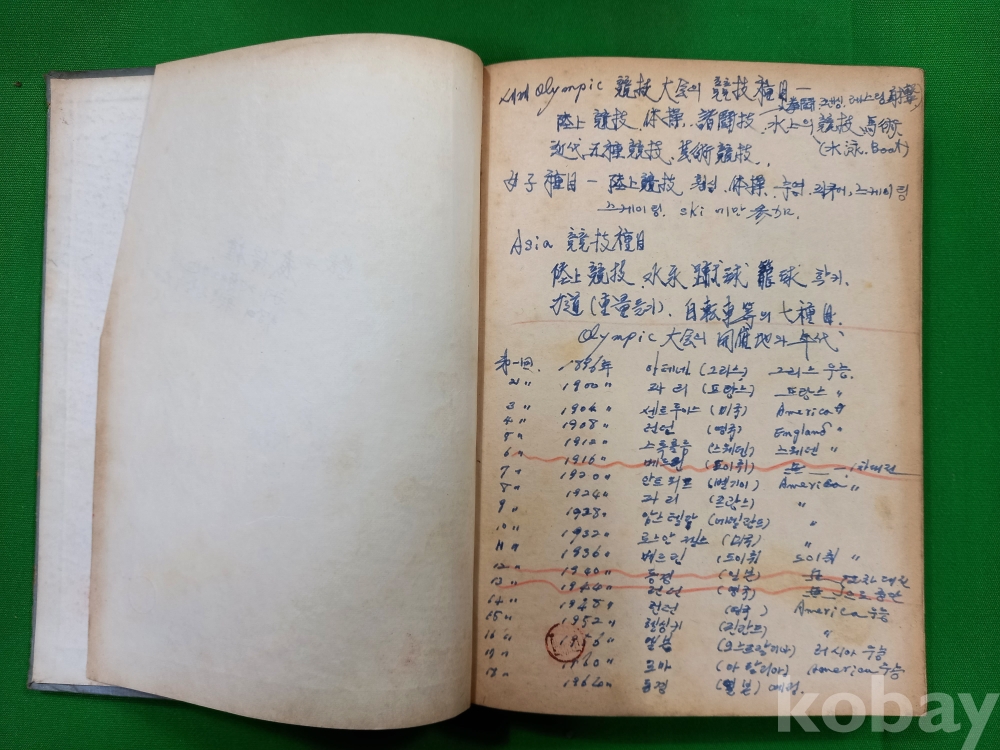 Olympic 競技 大会의 競技種目 —
拳闘 레스링 射撃
陸上 競技. 体操. 諸闘技. 水上의 競技 馬術
近代五種競技. 芸術競技.
(水泳. Boat)
女子 種目 — 陸上競技 体操. 수영 스케이링
스케이링. ski 에만 参加.
Asia 競技種目
陸上 競技. 水泳 蹴球 籠球 학키.
力道 (重量들기). 自転車 等의 七種目.
Olympic 大会의 開催地와 年代
第一回. 1896年 아테네 (그리스) 그리스 우승.
2 〃 1900 〃 파리 (프랑스) 프랑스 〃
3 〃 1904 〃 센트루이스 (미국) America 〃
4 〃 1908 〃 런던 (영국) England 〃
5 〃 1912 〃 스톡홀름 (스웨덴) 스웨덴 〃
6 〃 1916 〃 베르린 (도이취) 無 — 1차대전
7 〃 1920 〃 안트워프 (벨기이) America 〃
8 〃 1924 〃 파리 (프랑스) 〃
9 〃 1928 〃 암스텔담 (네델란드) 〃
10 〃 1932 〃 로스안젤스 (미국) 〃
11 〃 1936 〃 베르린 (도이취) 도이취 〃
12 〃 1940 〃 동경 (일본) 無 2차대전
13 〃 1944 〃 런던 (영국) 無 중단
14 〃 1948 〃 런던 (영국) America 우승
15 〃 1952 〃 헬싱키 (핀란드) 〃
16 〃 1956 〃 멜봄 (오스트랄리아) 러시아 우승
17 〃 1960 〃 로마 (이탈리아) American 우승
18 〃 1964 〃 동경 (일본) 예정.
kobay